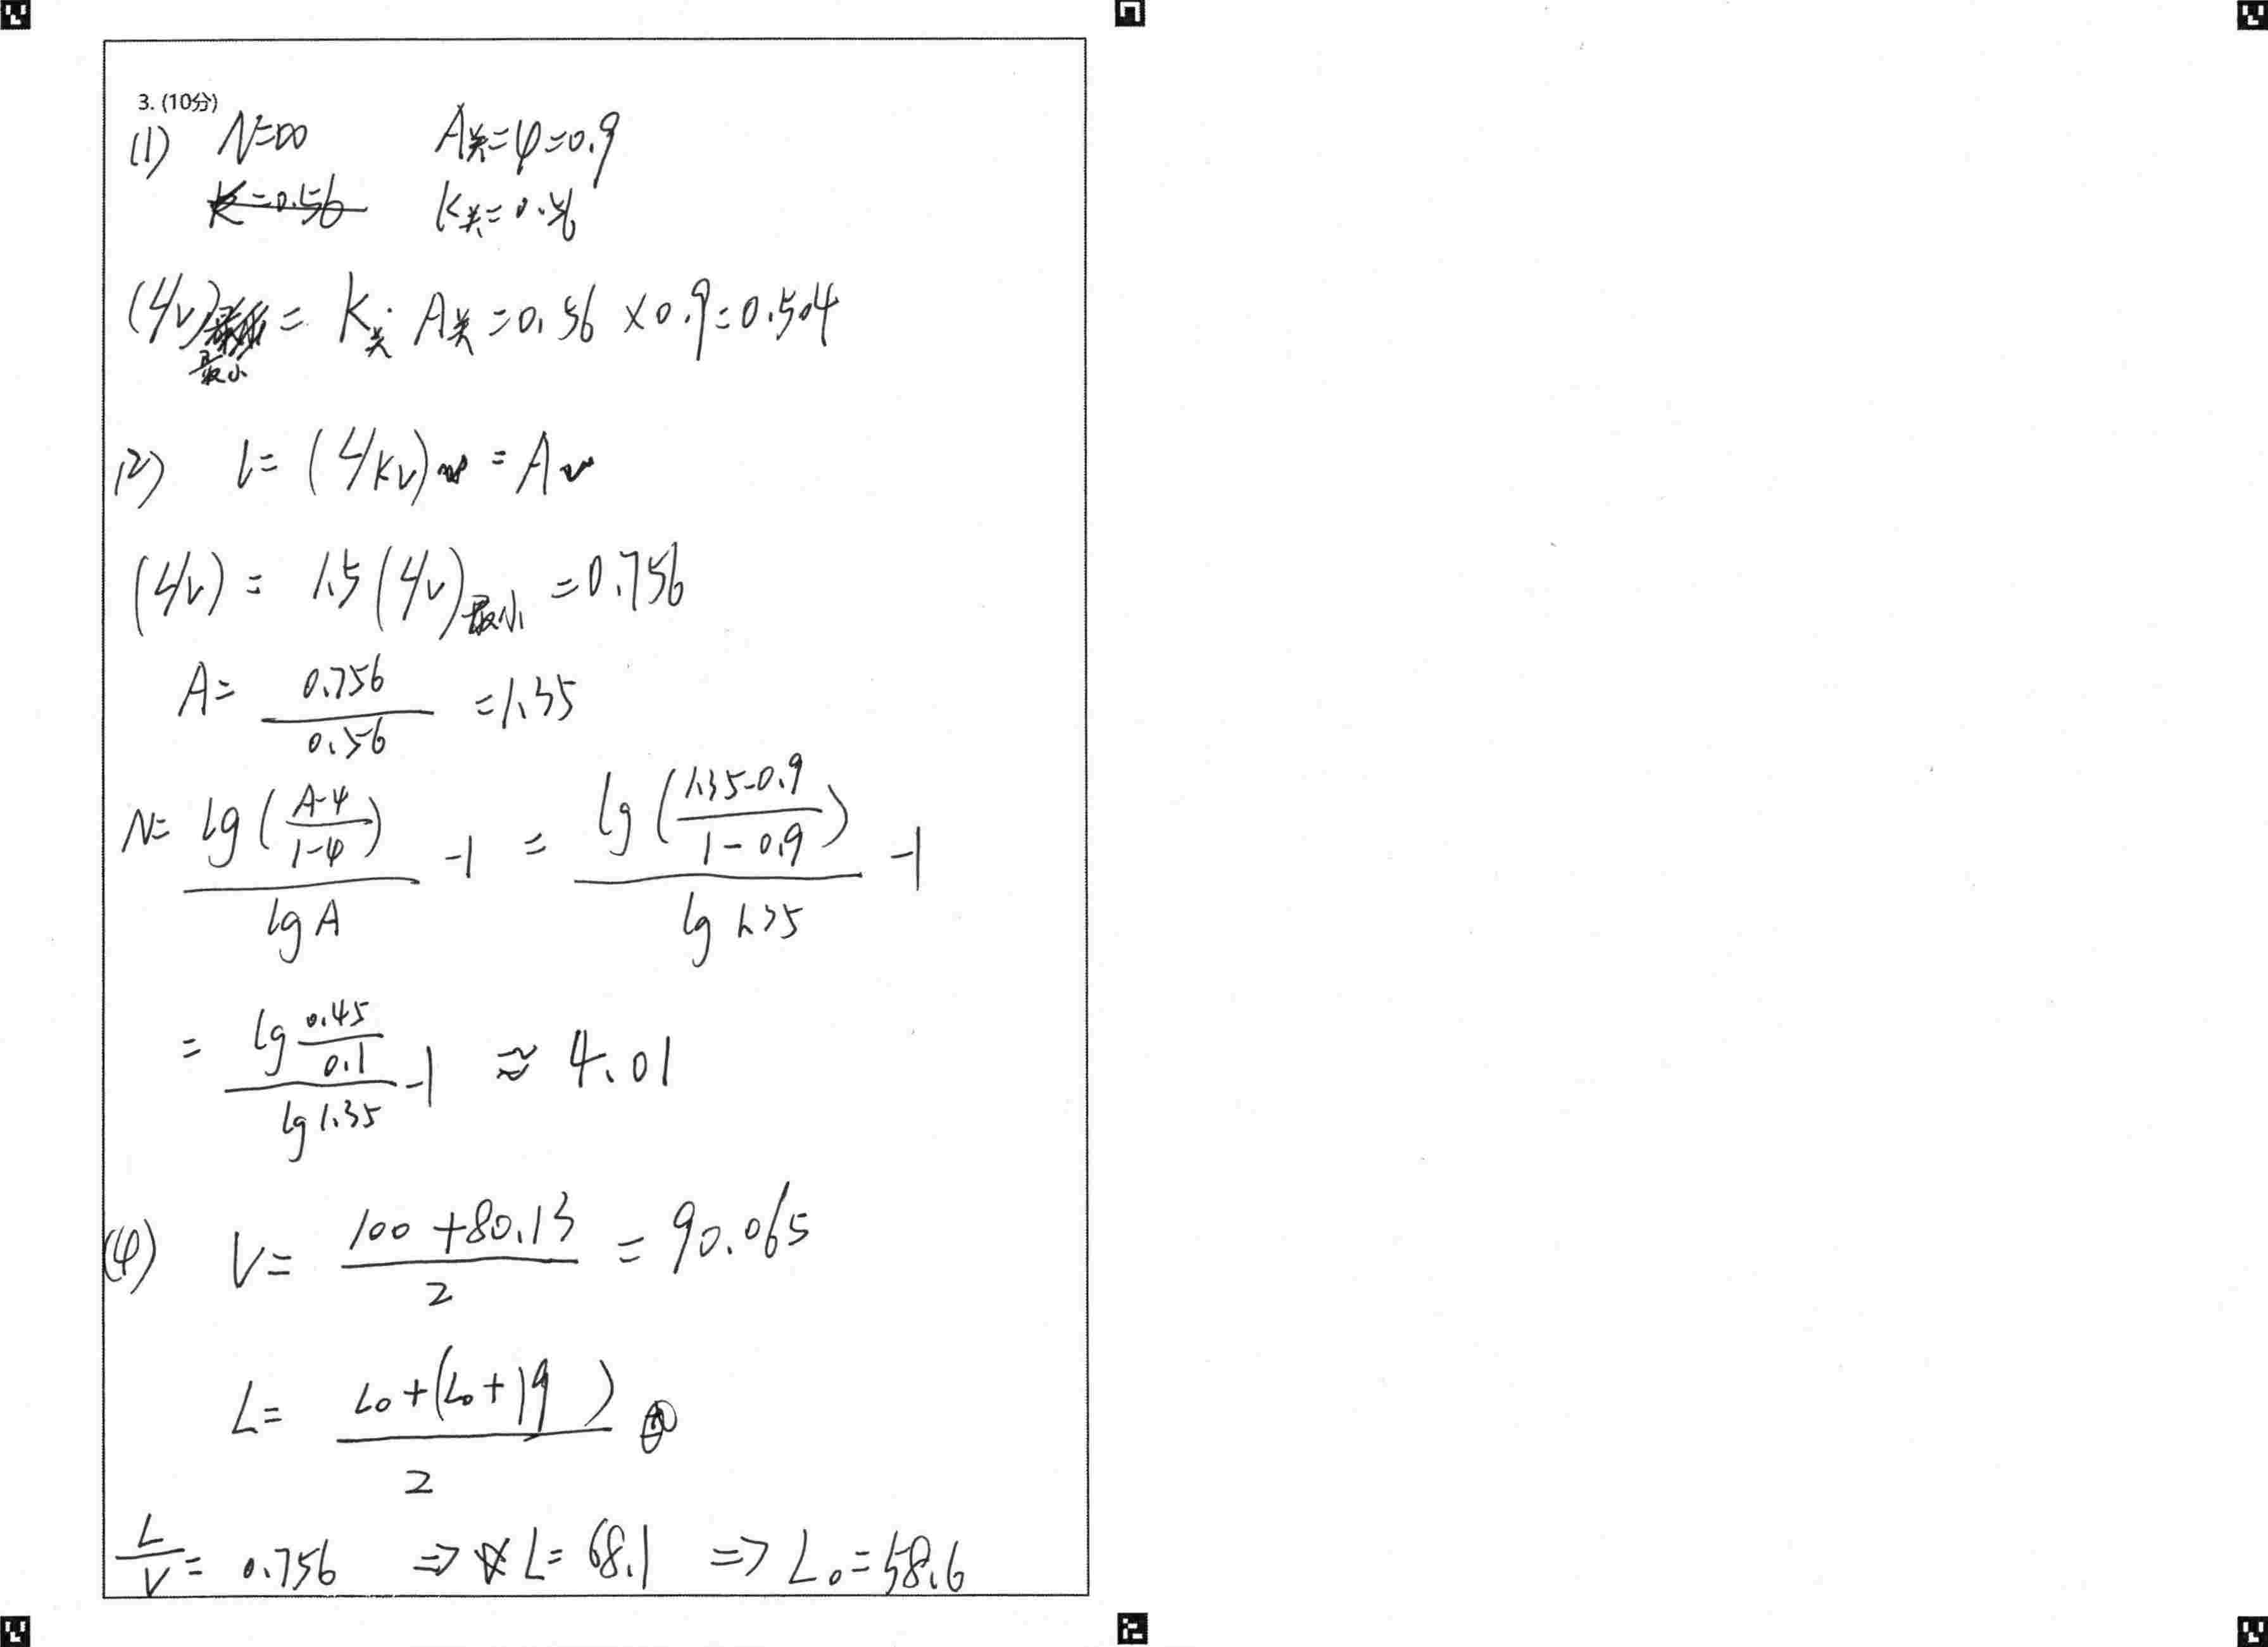 3. (10分)
(1) N=∞ A关=φ=0.9
K=0.56 K关=0.56
(L/V)最小 = K关·A关=0.56×0.9=0.504
(2) L=(L/KV) = A
(L/V) = 1.5(L/V)最小 =0.756
A= 0.756/0.56 =1.35
N= lg((A-φ)/(1-φ))/lgA -1 = lg((1.35-0.9)/(1-0.9))/lg1.35 -1
= lg(0.45/0.1)/lg1.35 -1 ≈ 4.01
(4) V= (100+80.13)/2 = 90.065
L= (L0+(L0+19))/2
L/V = 0.756 ⇒ L=68.1 ⇒ L0=58.6